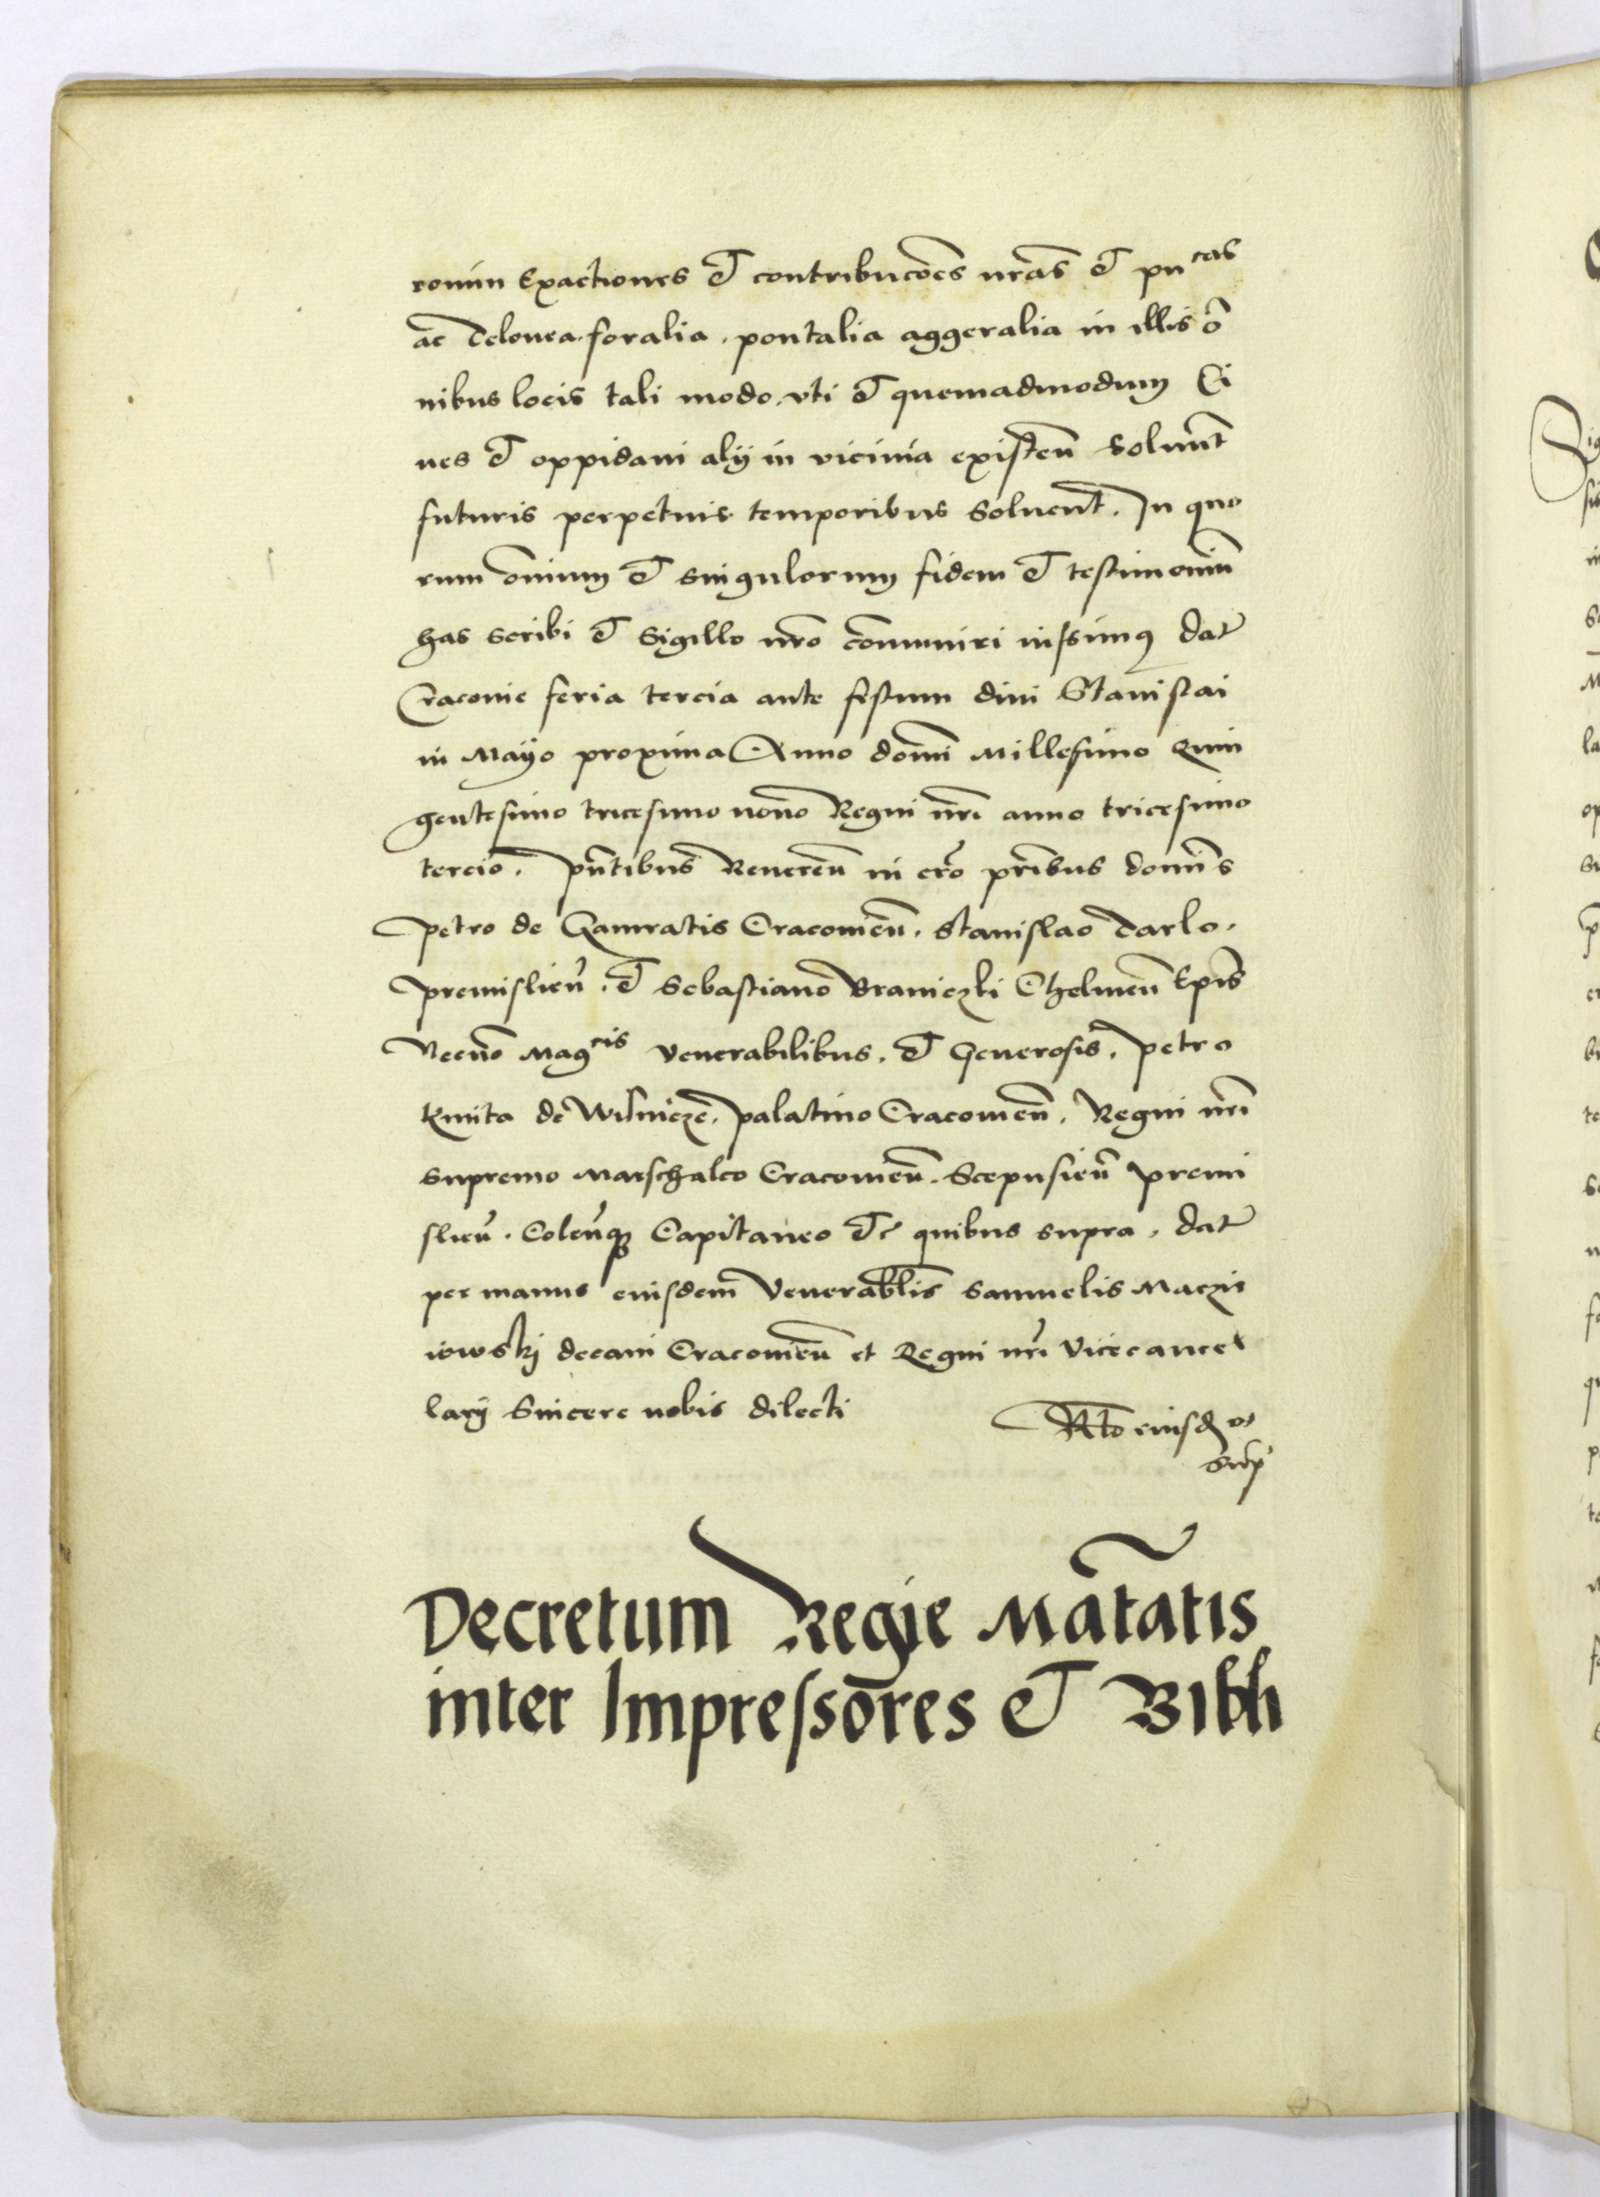 romin Exactiones et contribucões nrãs et pn̄tas
ac telonea. foralia. pontalia aggeralia in illis õ
nibus locis tali modo. vti et quemadmodum Ci
ues et oppidani alij in vicinia existeñ Soluũt
futuris perpetuis temporibus Soluent. In quo
rum omniũm et singulorum fidem et testimoniũ
has scribi et Sigillo nr̃o cõmuniri iussimus dat̃
Cracouie feria tercia ante festum diui Stanislai
in Mayo proxima Anno domĩ Millesimo Quin
gentesimo tricesimo nono Regni nr̃i anno tricesimo
tercio. pn̄tibus Reuereñ in cr̃o pr̃ibus domĩs
Petro de Gamratis Cracouieñ. Stanislao Tarlo.
premislieñ. et Sebastiano Braniczki Chelmeñ Epĩs
Necnõ Magcis Venerabilibus. et Generosis. petro
Kmita de Wisnicze. palatino Cracouieñ. Regni nr̃i
Supremo Marschalco Cracouieñ. Scepusieñ premi
slieñ. Coleñque Capitaneo etc quibus supra. dat̃
per manus eiusdem Venerabl̃is Samuelis Maczie
iowskj decani Cracouieñ et Regni nr̃i Vicecancel
larij Sincere nobis dilecti
Rl̃to eiusd vt
sup
Decretum Regie Mãtatis
inter Impressõres et Bibli